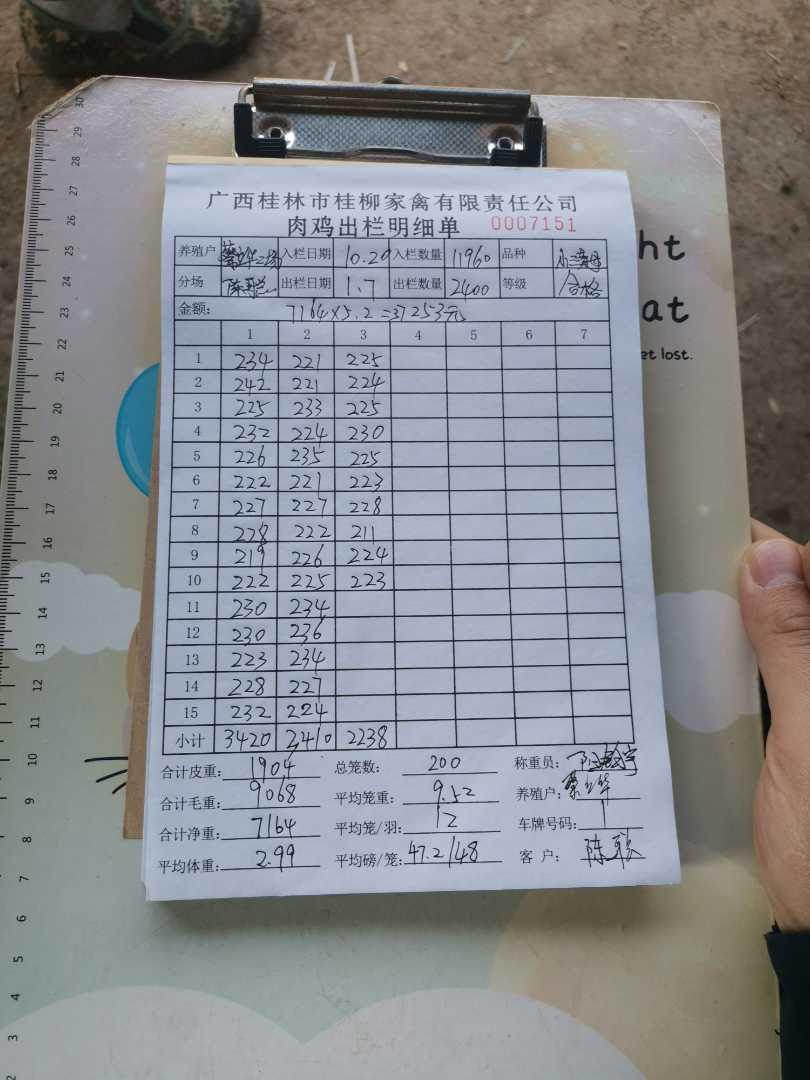 广西桂林市桂柳家禽有限责任公司
肉鸡出栏明细单 0007151
养殖户 入栏日期 10.20 入栏数量 11960 品种
分场 出栏日期 1.7 出栏数量 2400 等级 合格
金额: 7164×5.2=37253元
1 2 3 4 5 6 7
1 234 221 225
2 242 221 224
3 225 233 225
4 232 224 230
5 226 235 225
6 222 221 223
7 227 227 228
8 228 222 211
9 219 226 224
10 222 225 223
11 230 234
12 230 236
13 223 234
14 228 227
15 232 224
小计 3420 3410 2238
合计皮重: 1904 总笼数: 200 称重员:
合计毛重: 9068 平均笼重: 9.52 养殖户:
合计净重: 7164 平均笼/羽: 12 车牌号码:
平均体重: 2.99 平均磅/笼: 47.2/48 客户: 陈
ht
at
et lost.
30
29
28
27
26
25
24
23
22
21
20
19
18
17
16
15
14
13
12
11
10
9
8
7
6
5
4
3